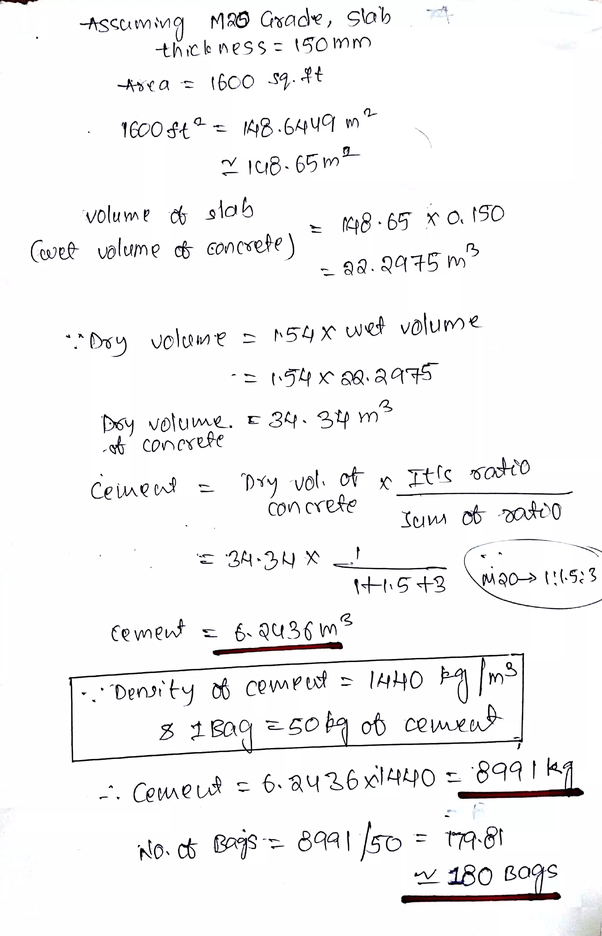 Assuming M20 Grade, slab
thickness = 150mm
Area = 1600 sq.ft
1600 ft² = 148.6449 m²
≃ 148.65 m²
volume of slab
(wet volume of concrete) = 148.65 x 0.150
= 22.2975 m³
∵ Dry volume = 1.54 x wet volume
= 1.54 x 22.2975
Dry volume. = 34.34 m³
of concrete
Cement = Dry vol. of concrete x It's ratio / Sum of ratio
= 34.34 x 1 / 1+1.5+3
∵ M20 → 1:1.5:3
Cement = 6.2436 m³
∵ Density of cement = 1440 kg/m³
& 1 Bag = 50kg of cement
∴ Cement = 6.2436x1440 = 8991 kg
No. of Bags = 8991/50 = 179.81
≃ 180 Bags